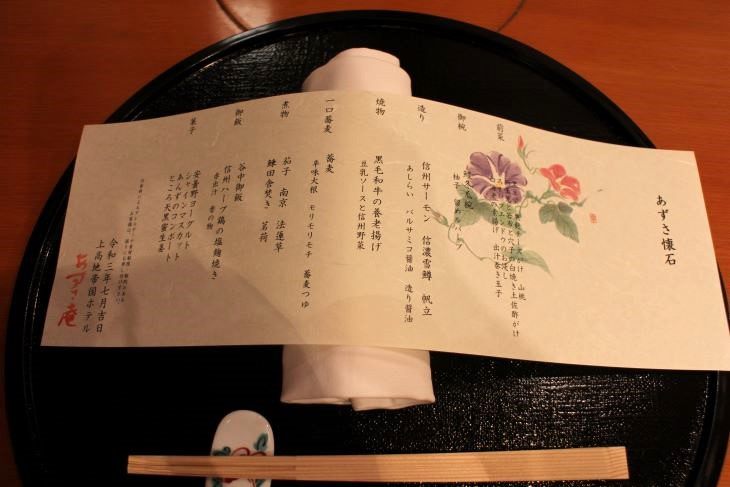 あずさ懐石
前菜
山桃
白焼き土佐酢がけ
お浸し
出汁巻き玉子
御椀
造り
信州サーモン 信濃雪鱒 帆立
あしらい バルサミコ醤油 造り醤油
焼物
黒毛和牛の養老揚げ
豆乳ソースと信州野菜
一口蕎麦
蕎麦
辛味大根 モリモリモチ 蕎麦つゆ
煮物
茄子 南京 法蓮草
鰊田舎焚き 茗荷
御飯
谷中御飯
信州ハーブ鶏の塩麹焼き
赤出汁 香の物
菓子
安曇野ヨーグルト
シャインマスカット
あんずのコンポート
ところ天黒蜜生姜
令和三年七月吉日
上高地帝国ホテル
あずさ庵